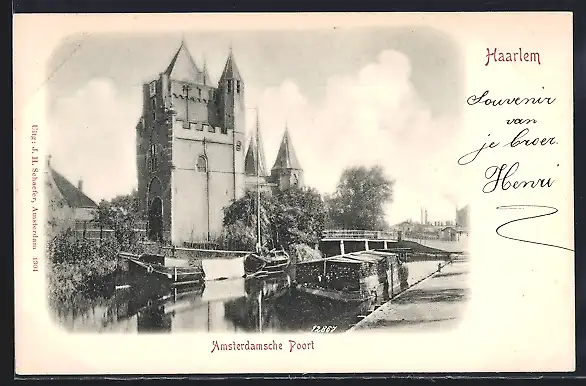 Haarlem
Souvenir
van
je broer.
Henri
Uitg: J. H. Schaefer, Amsterdam 1301
12867
Amsterdamsche Poort